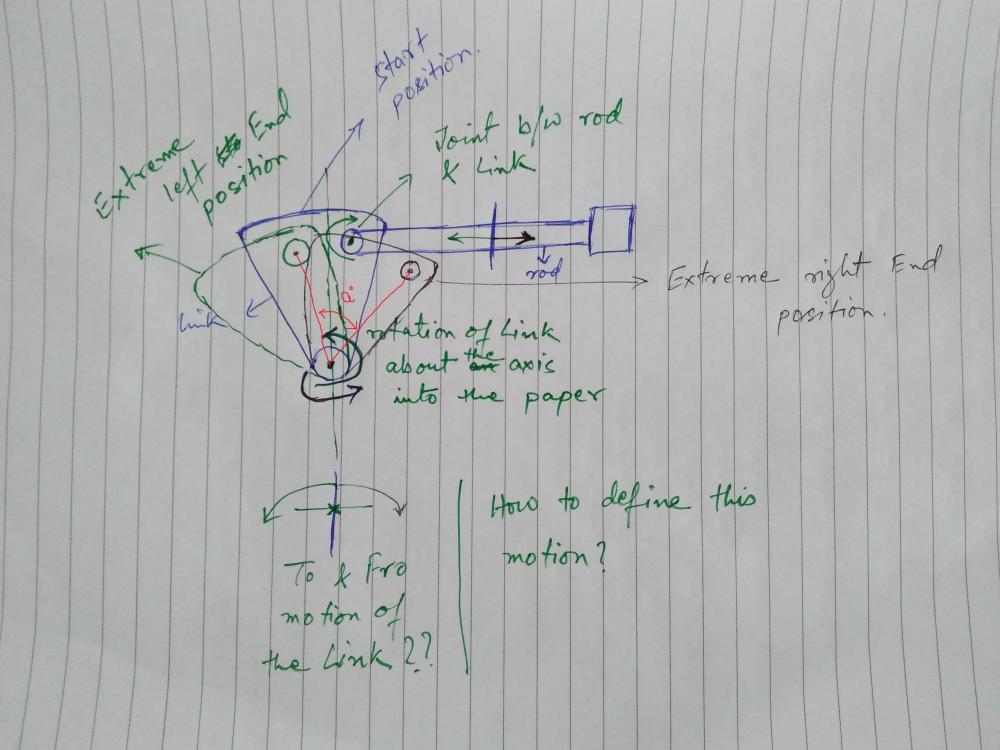 Start
position.
Extreme
left End
position
Joint b/w rod
& Link
rod
Extreme right End
position.
Link
a°
rotation of Link
about the axis
into the paper
To & Fro
motion of
the Link??
How to define this
motion?